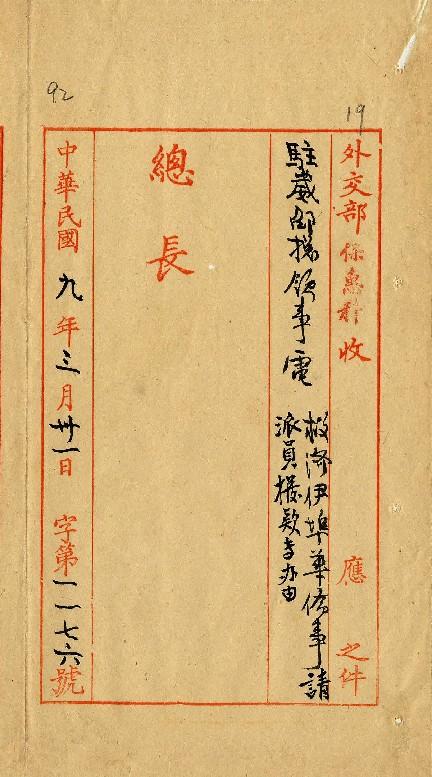 92
19
外交部保惠彩收 應 之件
駐崴邵揔領事電 救濟伊埠華僑事請
派員撥款寺办由
總長
中華民國九年三月卅一日 字第一一七六號